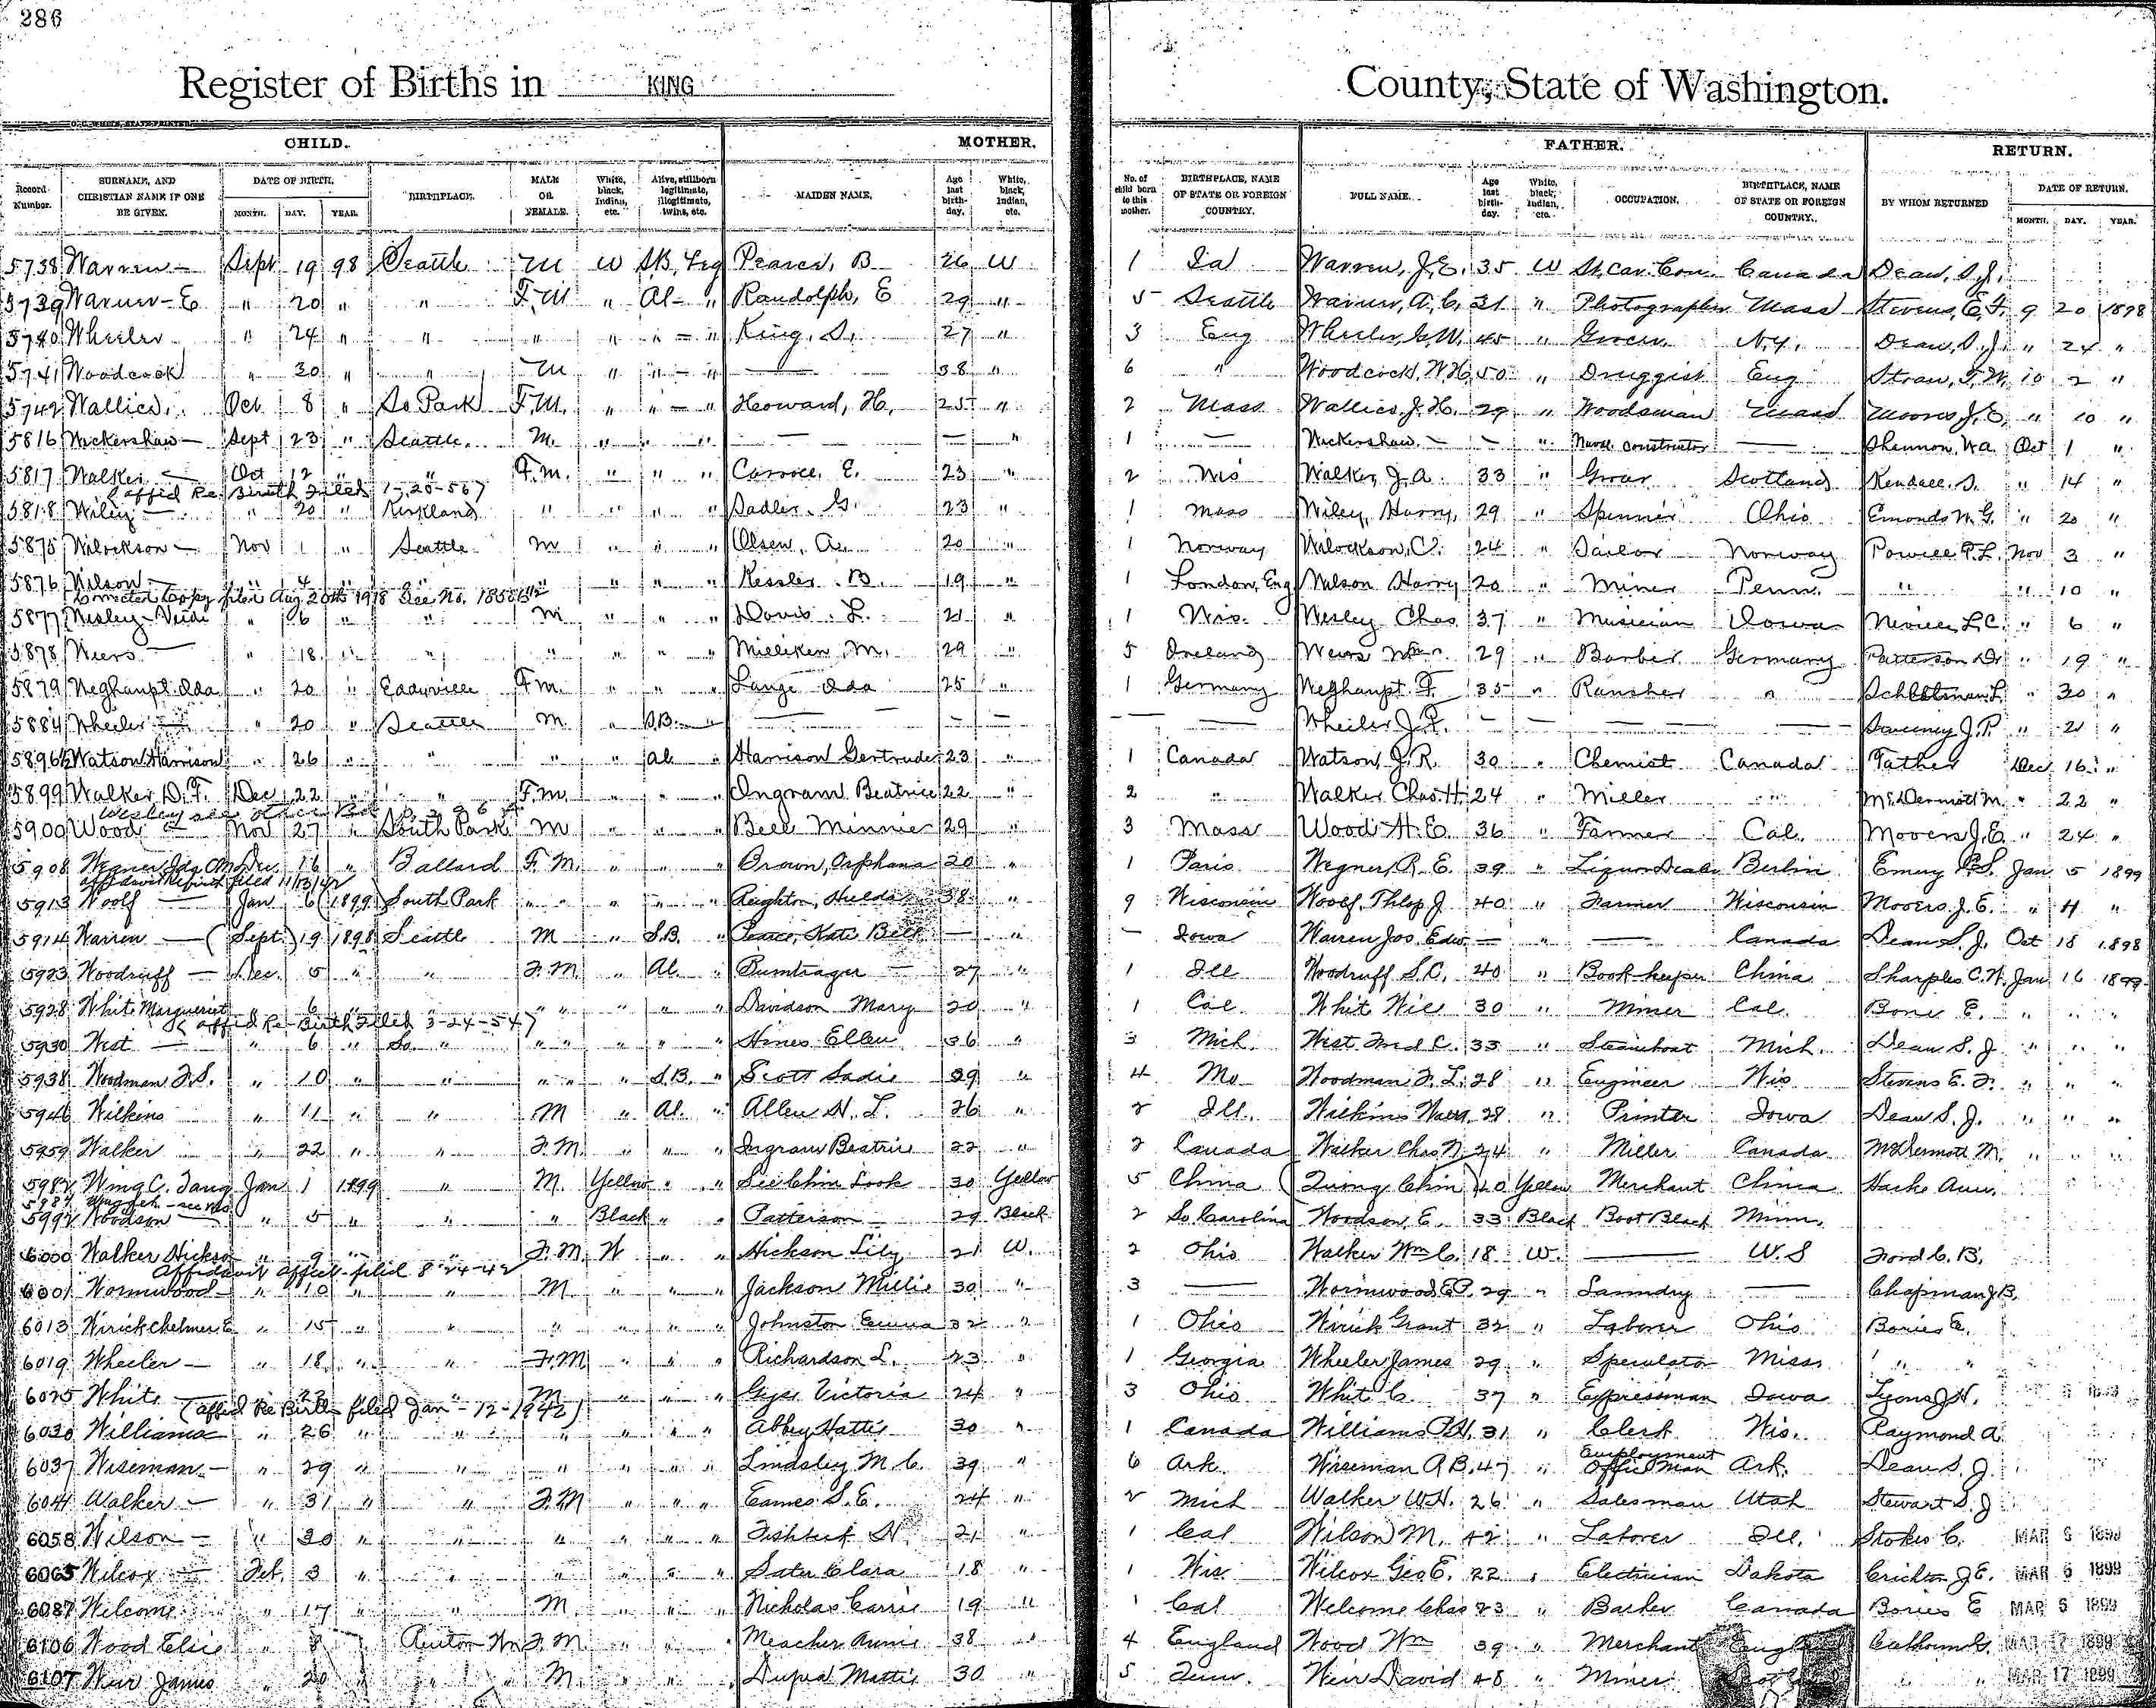 286
Register of Births in KING County, State of Washington.
O. C. WHITE, STATE PRINTER
CHILD. MOTHER. FATHER. RETURN.
Record Number. SURNAME, AND CHRISTIAN NAME IF ONE BE GIVEN. DATE OF BIRTH. MONTH. DAY. YEAR. BIRTHPLACE. MALE OR FEMALE. White, black, Indian, etc. Alive, stillborn legitimate, illegitimate, twins, etc. MAIDEN NAME. Age last birth-day. White, black, Indian, etc. No. of child born to this mother. BIRTHPLACE, NAME OF STATE OR FOREIGN COUNTRY. FULL NAME. Age last birth-day. White, black, Indian, etc. OCCUPATION. BIRTHPLACE, NAME OF STATE OR FOREIGN COUNTRY. BY WHOM RETURNED DATE OF RETURN. MONTH. DAY. YEAR.
5738 Warren — Sept 19 98 Seattle M W SB, Leg Pearce, B 26 W 1 Ia Warren, J.E. 35 W St. Car. Con. Canada Dean, S.J.
5739 Warner - E " 20 " " F.M " Al - " Randolph, E 29 " 5 Seattle Warner, A.C. 31 " Photographer Mass Stevens, E.F. 9 20 1898
5740 Wheeler " 24 " " " " " - " King, S. 27 " 3 Eng Wheeler, G.W. 45 " Grocer N.Y. Dean, S.J. " 24 "
5741 Woodcock " 30 " " M " " - " — 38 " 6 " Woodcock, W.H. 50 " Druggist Eng Straw, F.W. 10 2 "
5742 Wallica Oct 8 " So Park F.M. " " - " Howard, H. 25 " 2 Mass Wallica, J.H. 29 " Woodsman Mass Moores J.E. " 10 "
5816 Wickershaw — Sept 23 " Seattle M. " " " — — " 1 — Wickershaw — — " Naval constructor — Shannon, Wa Oct 1 "
5817 Walker — Oct 12 " " F.M. " " " E. 23 " 2 Wis Walker, J.A. 33 " Grocer Scotland Kendall, S. " 14 "
Affid Re Birth Filed 1-25-567
5818 Wiley — " 20 " Kirkland " " " " Sadler, G. 23 " 1 Mass Wiley, Harry 29 " Spinner Ohio Emonds W.G. " 20 "
5875 — Nov 1 " Seattle M " " " Olsen, A. 20 " 1 Norway 24 " Sailor Norway Powell F.L. Nov 3 "
5876 Wilson — " 4 " " " " " " Kessler, B. 19 " 1 London, Eng Wilson Harry 20 " Miner Penn. " " 10 "
Corrected Copy filed Aug 20th 1918 See No. 18581½
5877 Wesley - " 6 " " M " " " Davis, L. 21 " 1 Wis. Wesley Chas 37 " Musician Iowa L.C. " 6 "
5878 Weers — " 18 " " " " " " Milliken, M. 29 " 5 Ireland Weers Wm 29 " Barber Germany Patterson Dr " 19 "
5879 Weghaupt Ida " 20 " Eddyville F.M. " " " Lange Ida 25 " 1 Germany Weghaupt F. 35 " Rancher " L. " 30 "
5884 Wheeler — " 20 " Seattle M. " S.B. " — — — — — Wheeler J.P. — — — — Sweeney J.P. " 21 "
5896½ Watson Harrison " 26 " " " " Al. " Harrison Gertrude 23 " 1 Canada Watson, J.R. 30 " Chemist Canada Father Dec 16 "
5899 Walker D.F. Dec 22 " " F.M. " " " Ingram Beatrice 22 " 2 " Walker Chas. H. 24 " Miller " McDermott M. " 22 "
5900 Wood — Nov 27 " South Park M " " " Bell Minnie 29 " 3 Mass Wood H.E. 36 " Farmer Cal. Moores J.E. " 24 "
5908 Wegner Ida Dec 16 " Ballard F.M. " " " Brown, Orphana 20 " 1 Paris Wegner, R.E. 39 " Liquor Dealer Berlin Emery P.S. Jan 5 1899
Affidavit Re birth filed 11/13/42
5913 Woolf — Jan 6 1899 South Park " " " " Reighton, Hulda 38 " 9 Wisconsin Woolf, Philip J 40 " Farmer Wisconsin Moores J.E. " 4 "
5914 Warren — (Sept) 19 1898 Seattle M " S.B. " Pearce, Kate Bell — " — Iowa Warren Jos. Edw. — " — Canada Dean S.J. Oct 18 1898
5923 Woodruff — Dec. 5 " " F.M " Al. " Bumtrager — 27 " 1 Ill Woodruff S.C. 40 " Book-keeper China Sharples C.W. Jan 16 1899
5928 White Marguerite " 6 " " " " " " " Davidson Mary 20 " 1 Cal. Whit Wil 30 " Miner Cal. E. " " "
Affid Re Birth Filed 3-24-547
5930 West — " 6 " So. " " " " " " Hines Ellen 36 " 3 Mich. West Fred C. 33 " Steamboat Mich. Dean S.J. " " "
5938 Woodman F.S. " 10 " " " " " S.B. " Scott Sadie 29 " 4 Mo Woodman F.L. 28 " Engineer Wis Stevens E.F. " " "
5946 Wilkins " 11 " " M " Al. " Allen H.L. 26 " 2 Ill. Wilkins 28 " Printer Iowa Dean S.J. " " "
5959 Walker " 22 " " F.M. " " " Ingram Beatrice 22 " 2 Canada Walker Chas H. 24 " Miller Canada McDermott M. " " "
5987 Wing C. Tang Jan 1 1899 " M. Yellow " " See Chin Look 30 Yellow 5 China Quong Chin 40 Yellow Merchant China Harke Ann.
5992 Woodson — " 5 " " " Black " " Patterson — 29 Black 2 So Carolina Woodson, E. 33 Black Boot Black Minn.
6000 Walker Hickson " 9 " " F.M. W " " Hickson Lily 21 W. 2 Ohio Walker Wm C. 18 W. — W.S Ford C.B.
Affidavit filed 8-24-42
6001 Wormwood " 10 " " M " " " Jackson Millie 30 " 3 — Wormwood E.P. 29 " Laundry — Chapman J B.
6013 Wirick Chelmer E. " 15 " " " " " " Johnston Emma 32 " 1 Ohio Wirick Grant 32 " Laborer Ohio Bories E.
6019 Wheeler — " 18 " " F.M " " " Richardson L. 23 " 1 Georgia Wheeler James 29 " Speculator Miss " "
6025 White — " 22 " " M " " " Victoria 24 " 3 Ohio Whit C. 37 " Expressman Iowa Lyons J.H.
(Affid Re Birth filed Jan - 12 - 1942)
6030 Williams " 26 " " " " " " Abbey Hattie 30 " 1 Canada Williams P.H. 31 " Clerk Wis. Raymond A.
6037 Wiseman — " 29 " " " " " " Lindsley M.C. 39 " 6 Ark. Wiseman A B. 47 " Employment Office Man Ark. Dean S.J.
6041 Walker — " 31 " " F.M " " " Eames S.E. 24 " 2 Mich Walker W.H. 26 " Salesman Utah Stewart S.J
6058 Wilson — " 30 " " " " " " 21 " 1 Cal Wilson M. 42 " Laborer Ill. Stokes C. MAR 6 1899
6065 Wilcox — Feb. 3 " " " " " " Sater Clara 18 " 1 Wis. Wilcox Geo E. 22 " Electrician Dakota Crichton J E. MAR 6 1899
6087 Welcome " 17 " " M. " " " Nicholas Carrie 19 " 1 Cal Welcome Chas 23 " Barber Canada Bories E MAR 6 1899
6106 Wood Elsie " 8 " F.M. " " " Meacher Annie 38 " 4 England Wood Wm 39 " Merchant Engl Calhoun G. MAR 17 1899
6107 Weir James " 20 " " M. " " " Dupea Mattie 30 " 5 Weir David 48 " Miner " MAR 17 1899